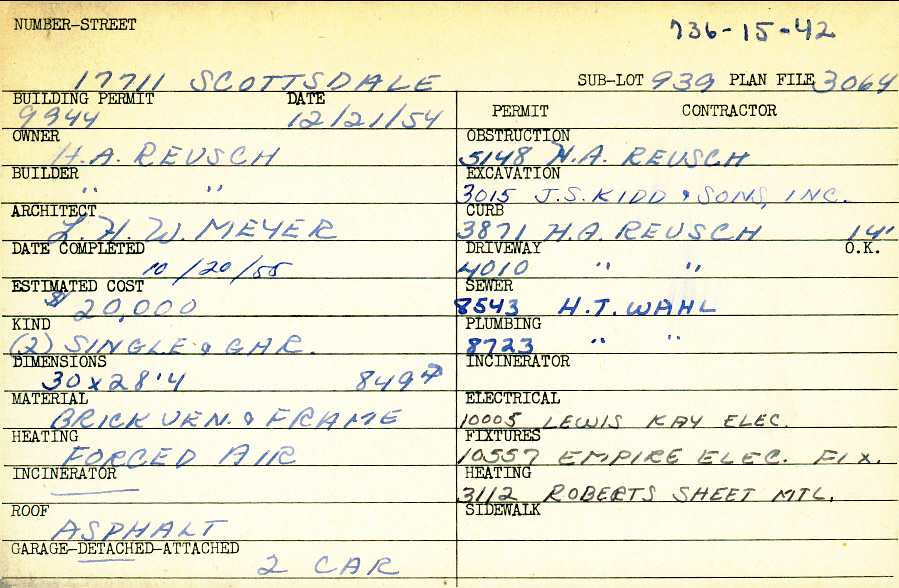 NUMBER-STREET
736-15-42
17711 SCOTTSDALE SUB-LOT 939 PLAN FILE 3064
BUILDING PERMIT DATE
9944 12/21/54
OWNER
H.A. REUSCH
BUILDER
" "
ARCHITECT
L.H.W. MEYER
DATE COMPLETED
10/20/55
ESTIMATED COST
$20,000
KIND
(2) SINGLE & GAR.
DIMENSIONS
30 x 28'4 8497
MATERIAL
BRICK VEN. & FRAME
HEATING
FORCED AIR
INCINERATOR
ROOF
ASPHALT
GARAGE-DETACHED-ATTACHED
2 CAR
PERMIT CONTRACTOR
OBSTRUCTION
5148 H.A. REUSCH
EXCAVATION
3015 J.S. KIDD & SONS, INC.
CURB
3871 H.A. REUSCH 14'
DRIVEWAY O.K.
4010 " "
SEWER
8543 H.T. WAHL
PLUMBING
8723 " "
INCINERATOR
ELECTRICAL
10005 LEWIS KAY ELEC.
FIXTURES
10557 EMPIRE ELEC. FIX.
HEATING
3112 ROBERTS SHEET MTL.
SIDEWALK